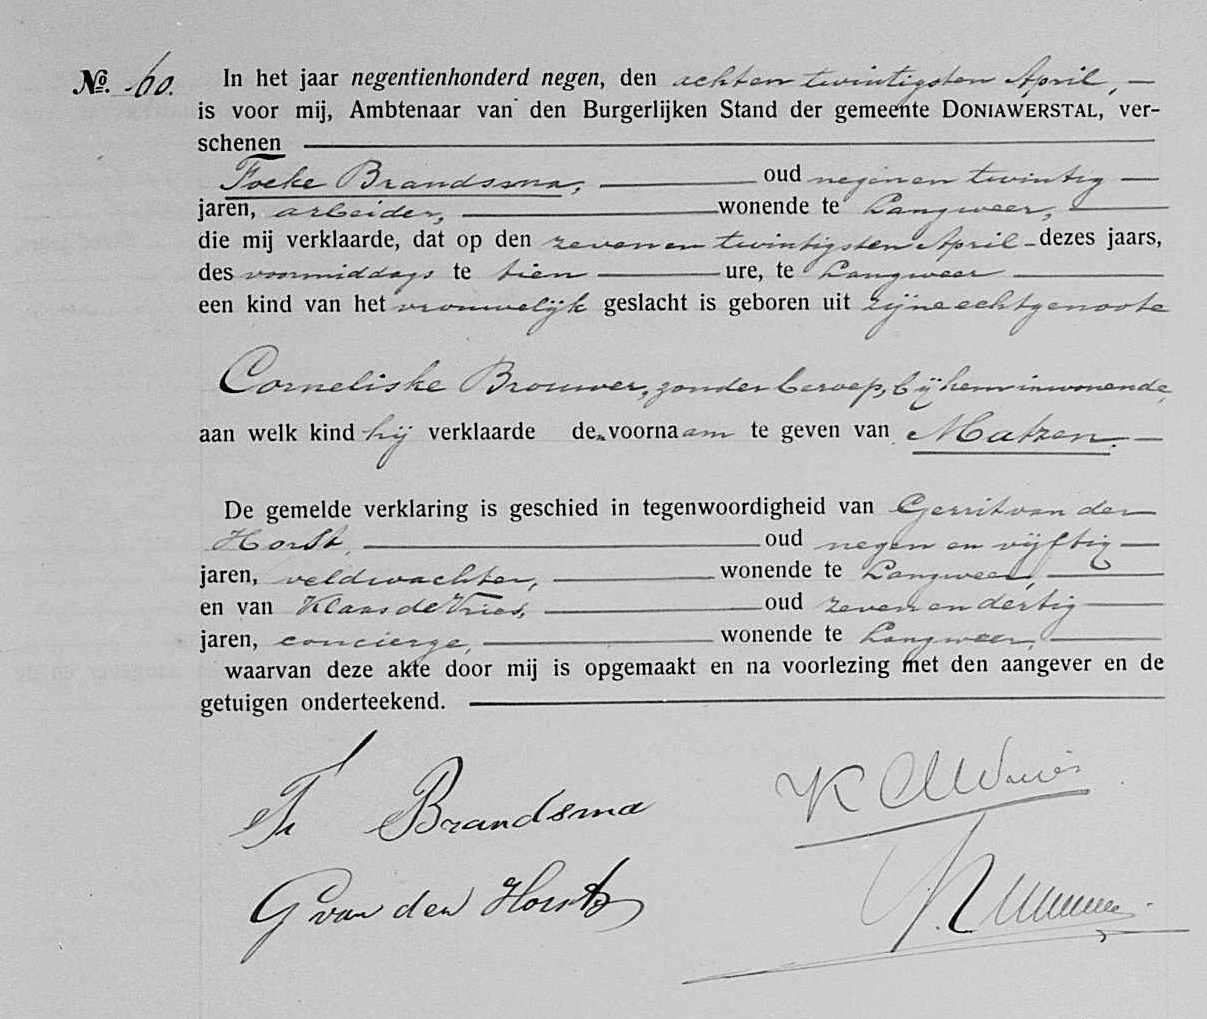 No. 60. In het jaar negentienhonderd negen, den achten twintigsten April,
is voor mij, Ambtenaar van den Burgerlijken Stand der gemeente DONIAWERSTAL, ver-
schenen
Foeke Brandsma, oud negen en twintig
jaren, arbeider, wonende te Langweer,
die mij verklaarde, dat op den zeven en twintigsten April dezes jaars,
des voormiddags te tien ure, te Langweer
een kind van het vrouwelijk geslacht is geboren uit zijne echtgenoote
Corneliske Brouwer, zonder beroep, bij hem inwonende,
aan welk kind hij verklaarde de voornaam te geven van Matzen.
De gemelde verklaring is geschied in tegenwoordigheid van Gerrit van der
Horst, oud negen en vijftig
jaren, veldwachter, wonende te Langweer,
en van Klaas de Vries, oud zeven en dertig
jaren, concierge, wonende te Langweer,
waarvan deze akte door mij is opgemaakt en na voorlezing met den aangever en de
getuigen onderteekend.
F Brandsma K de Vries
G van der Horst